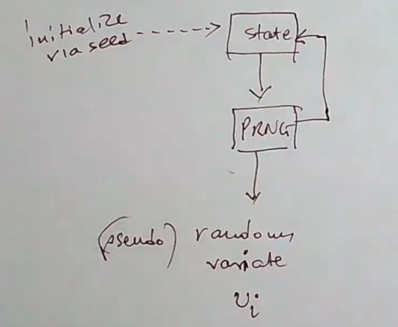 initialize
via seed
State
PRNG
(pseudo) random
variate
Ui